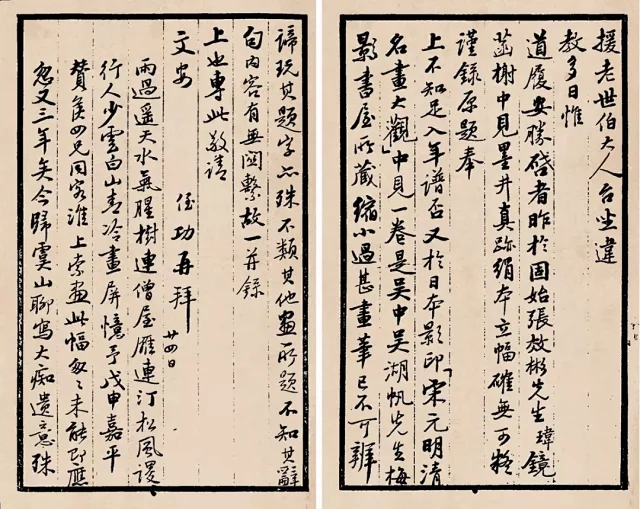 援老世伯大人台坐違
教多日惟
道履安勝啓者昨於固始張效彬先生瑋鏡
菡榭中見墨井真跡絹本立幅確無可疑
謹錄原題奉
上不知足入年譜否又於日本影印「宋元明清
名畫大觀」中見一卷是吳中吳湖帆先生梅
影書屋所藏縮小過甚畫筆已不可辨
諦玩其題字亦殊不類其他畫所題不知其辭
句內容有無關繫故一并錄
上也專此敬請
文安
侄功再拜
廿四日
雨過遥天水氣腥樹連僧屋雁連汀松風謖〻
行人少雲白山青冷畫屏憶予戊申嘉平
贊侯四兄同客淮上索畫此幅匆〻未能即應
忽又三年矣今歸虞山聊寫大痴遺意殊